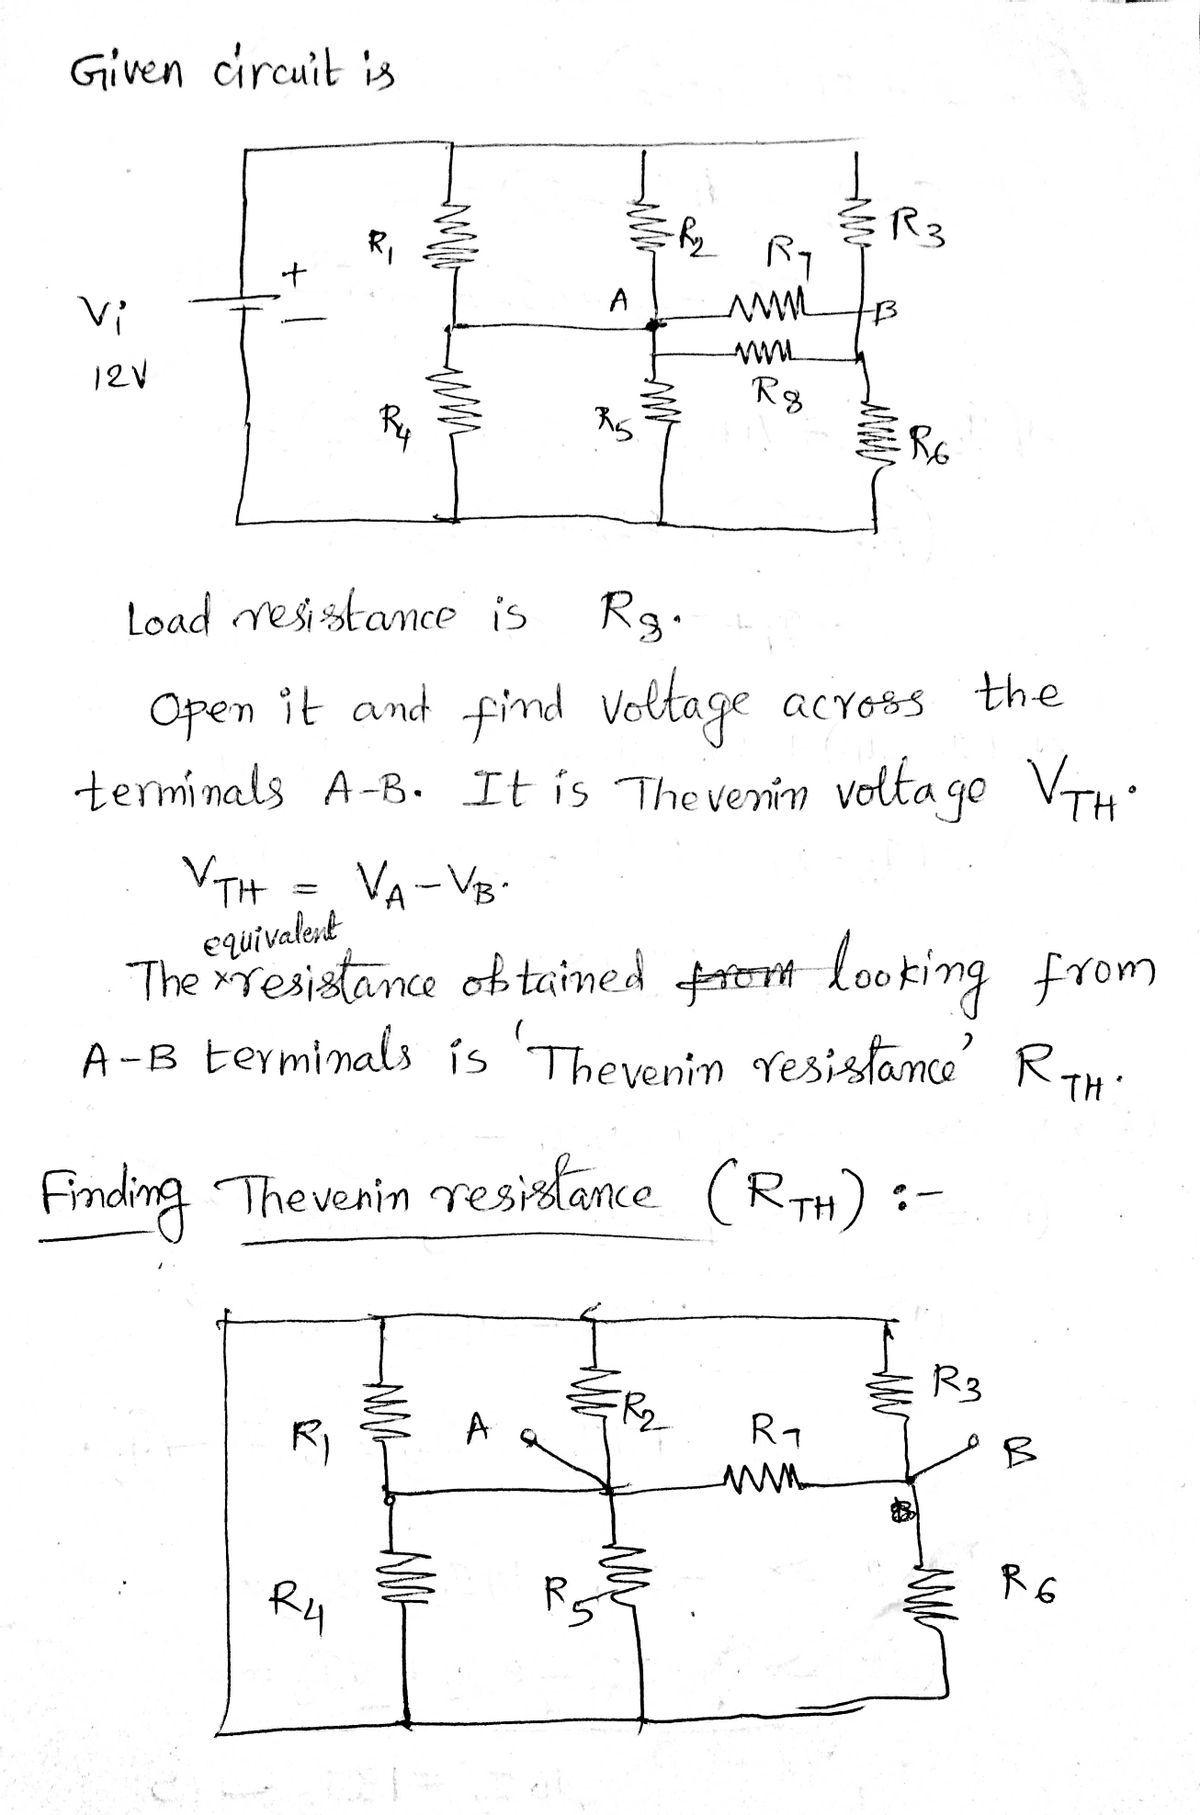 Given circuit is
R1
R2
R3
R7
+
A
B
Vi
12V
R8
R4
R5
R6
Load resistance is R8.
Open it and find voltage across the
terminals A-B. It is Thevenin voltage VTH.
VTH = VA - VB.
equivalent
The xresistance obtained from looking from
A-B terminals is 'Thevenin resistance' RTH.
Finding Thevenin resistance (RTH) :-
R3
R2
R1
A
R7
B
B
R4
R5
R6